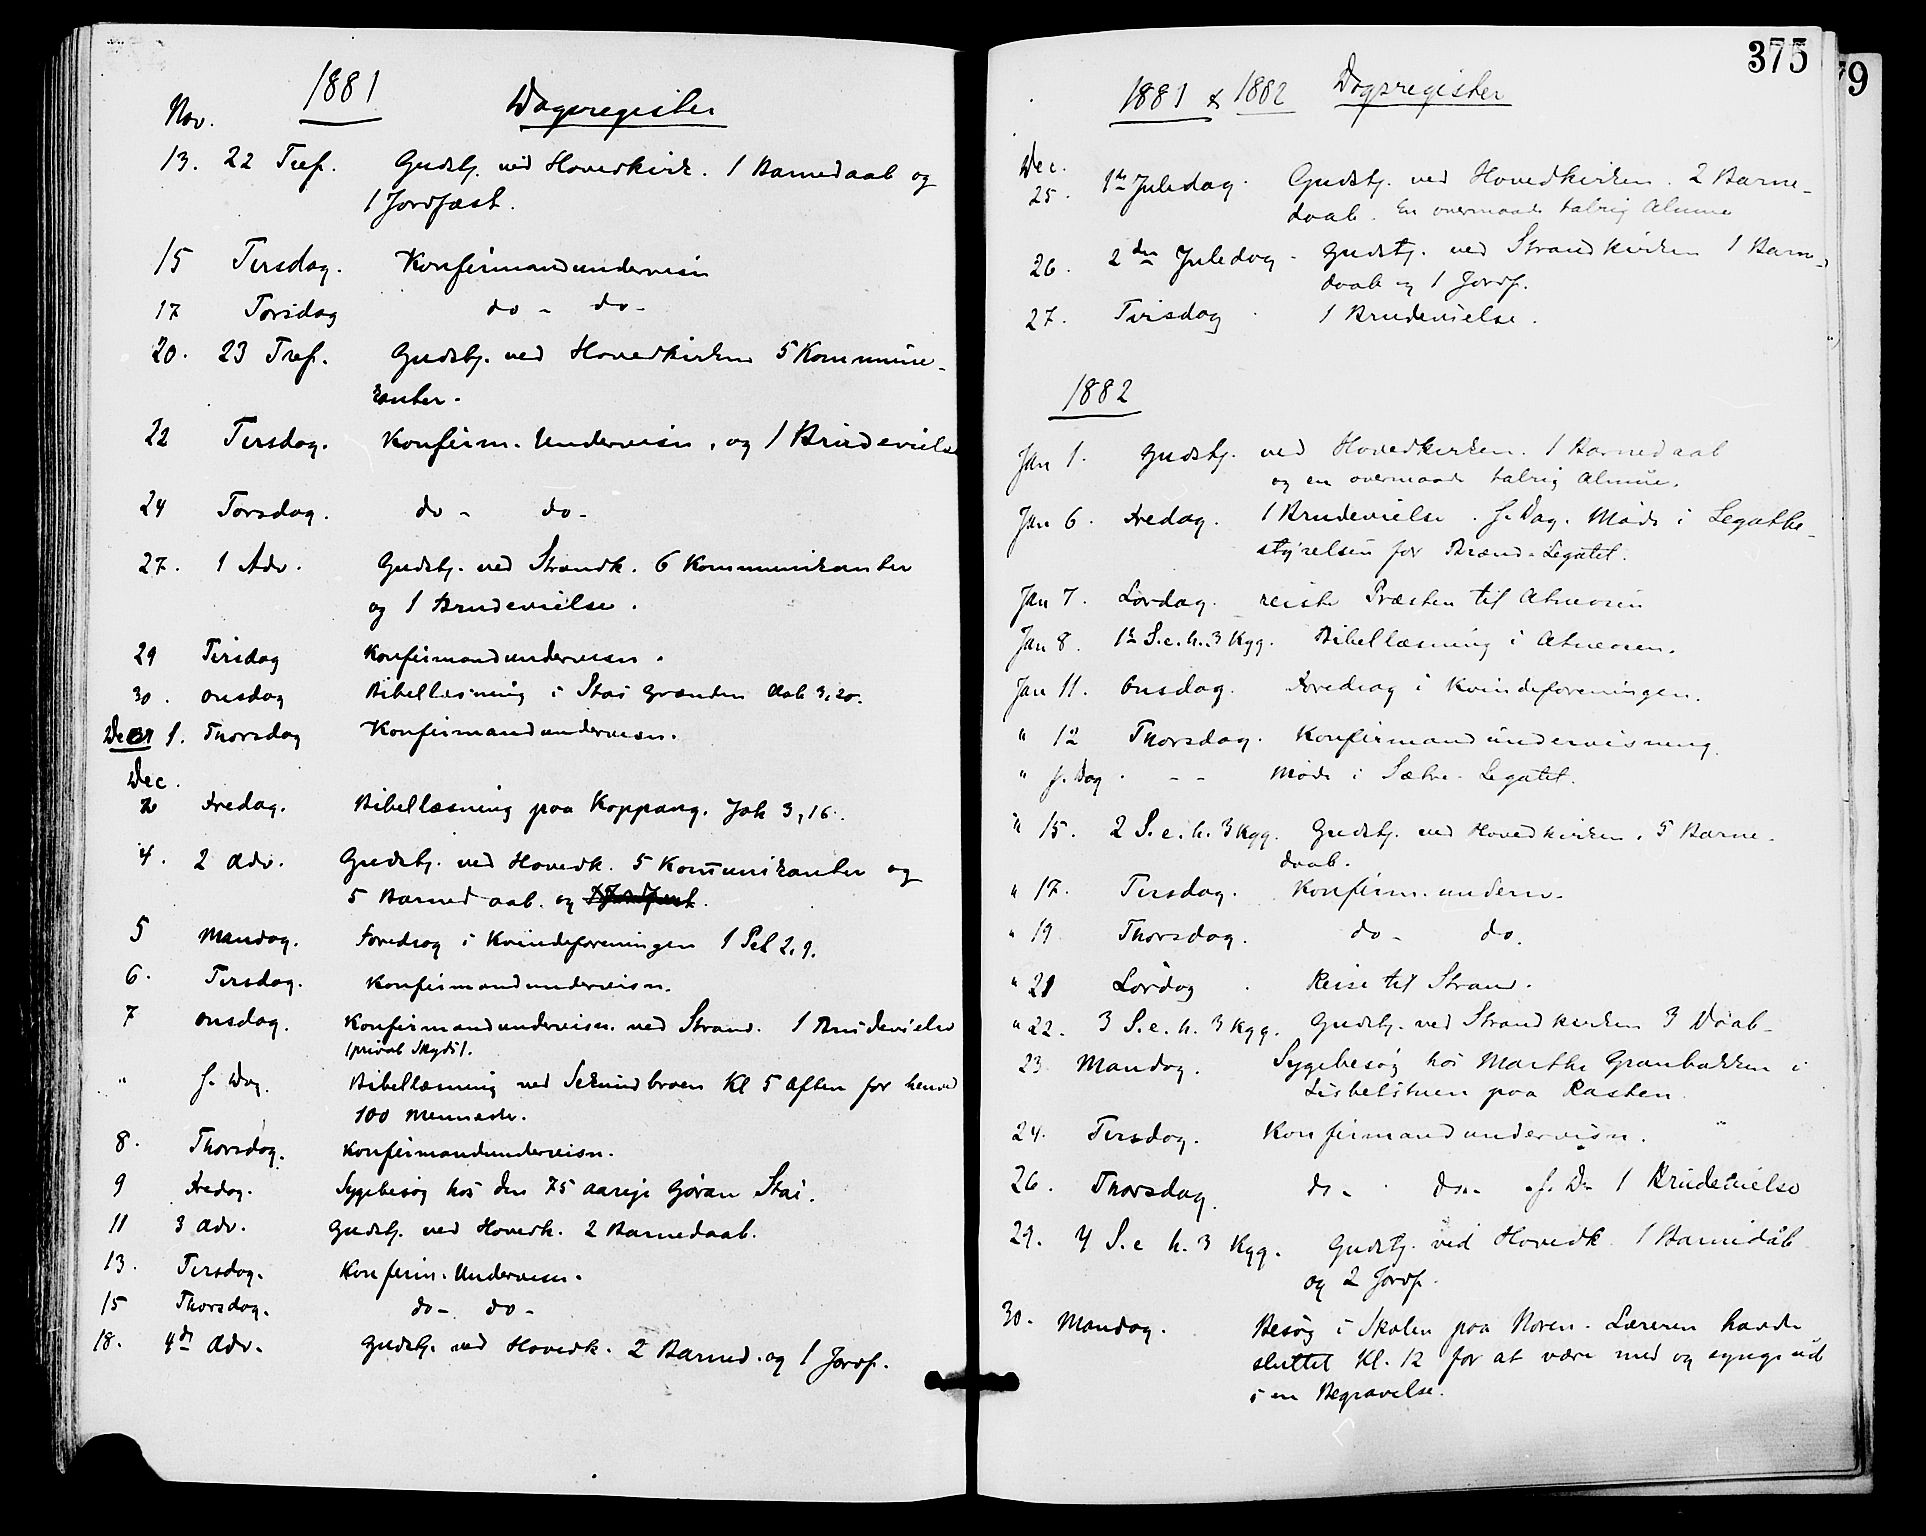 1881 Dagsregister
Nov.
13. 22 Tref. Gudstj. ved Hovedkirk. 1 Barnedaab og
1 Jordfæst.
15 Tirsdag. Konfirmandundervisn
17 Torsdag do - do -
20. 23 Tref. Gudstj. ved Hovedkirken 5 Kommuni-
kanter.
22 Tirsdag. Konfirm. Undervisn. og 1 Brudevielse
24 Torsdag. do - do -
27. 1 Adv. Gudstj. ved Strandk. 6 Kommunikanter
og 1 Brudevielse.
29 Tirsdag Konfirmandundervisn.
30. Onsdag Bibellæsning i Stai Grænden Aab 3,20.
Dec 1. Thorsdag Konfirmandundervisn.
Dec.
2 Fredag. Bibellæsning paa Koppang. Joh 3,16.
4. 2 Adv. Gudstj. ved Hovedk. 5 Komunikanter og
5 Barned aab. og
5 Mandag. Foredrag i Kvindeforeningen 1 Pet 2.9.
6. Tirsdag. Konfirmandundervisn.
7 Onsdag. Konfirmandundervisn. ved Strand. 1 Brudevielse
(privat Skyds).
" s. Dag. Bibellæsning ved Sekundbroen Kl 5 Aften for henved
100 Mennesker.
8. Thorsdag. Konfirmandundervisn.
9 Fredag. Sygebesøg hos den 75 aarige Gøran Stai.
11 3 Adv. Gudstj. ved Hovedk. 2 Barnedaab.
13. Tirsdag. Konfirm. Undervisn.
15 Thorsdag. do - do -
18. 4de Adv. Gudstj. ved Hovedk. 2 Barned. og 1 Jordf.
375
79
1881 & 1882 Dagsregister
Dec.
25. 1ste Juledag. Gudstj. ved Hovedkirken. 2 Barne-
daab. En overmaade talrig Almue
26. 2den Juledag. Gudstj. ved Strandkirken 1 Barne-
daab og 1 Jordf.
27. Tirsdag. 1 Brudevielse.
1882
Jan 1. Gudstj. ved Hovedkirken. 1 Barnedaab
og en overmaade talrig Almue.
Jan 6. Fredag. 1 Brudevielse. s. Dag. Møde i Legatbe-
styrelsen for Brænd-Legatet.
Jan 7. Lørdag. reiste Præsten til Atneosen
Jan 8. 1ste S. e. h. 3 Kgg. Bibellæsning i Atneosen.
Jan 11. Onsdag. Foredrag i Kvindeforeningen.
" 12 Thorsdag. Konfirmandundervisning.
" s. Dag. - - Møde i Sætre-Legatet.
" 15. 2 S. e. h. 3 Kgg. Gudstj. ved Hovedkirken. 5 Barne-
daab.
" 17. Tirsdag. Konfirm. underv.
" 19 Thorsdag. do - do.
" 21 Lørdag. Reise til Strand.
" 22. 3 S. e. h. 3 Kgg. Gudstj. ved Strandkirken 3 Daab-
23. Mandag. Sygebesøg hos Marthe Granbakken i
Lisbetstuen paa Rasten.
24. Tirsdag. Konfirmandundervisn.
26. Thorsdag. do - do. - s. D. 1 Brudevielse
29. 4 S. e h. 3 Kgg. Gudstj. ved Hovedk 1 Barnedåb
og 2 Jordf.
30. Mandag. Besøg i Skolen paa Moren. Læreren havde
sluttet Kl. 12 for at være med og synge ud
i en Begravelse.